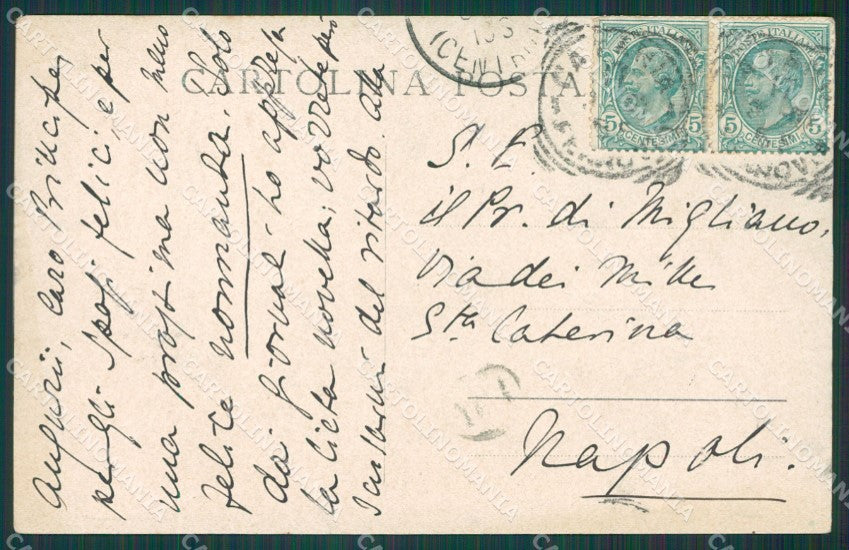 CARTOLINA POSTA
(CENTRO
POSTE ITALIANE
5 CENTESIMI 5
POSTE ITALIANE
5 CENTESIMI 5
S. E.
il Pr. di Migliano,
Via dei Mille
Sta Caterina
Napoli.
Auguri, caro Principe,
per gli Sposi felici, e per
una prossima non meno
felice nomanda. Solo
dai giornali ho appreso
la lieta novella; vorrete più
scusarmi del ritardo. alla
CARTOLINOMANIA